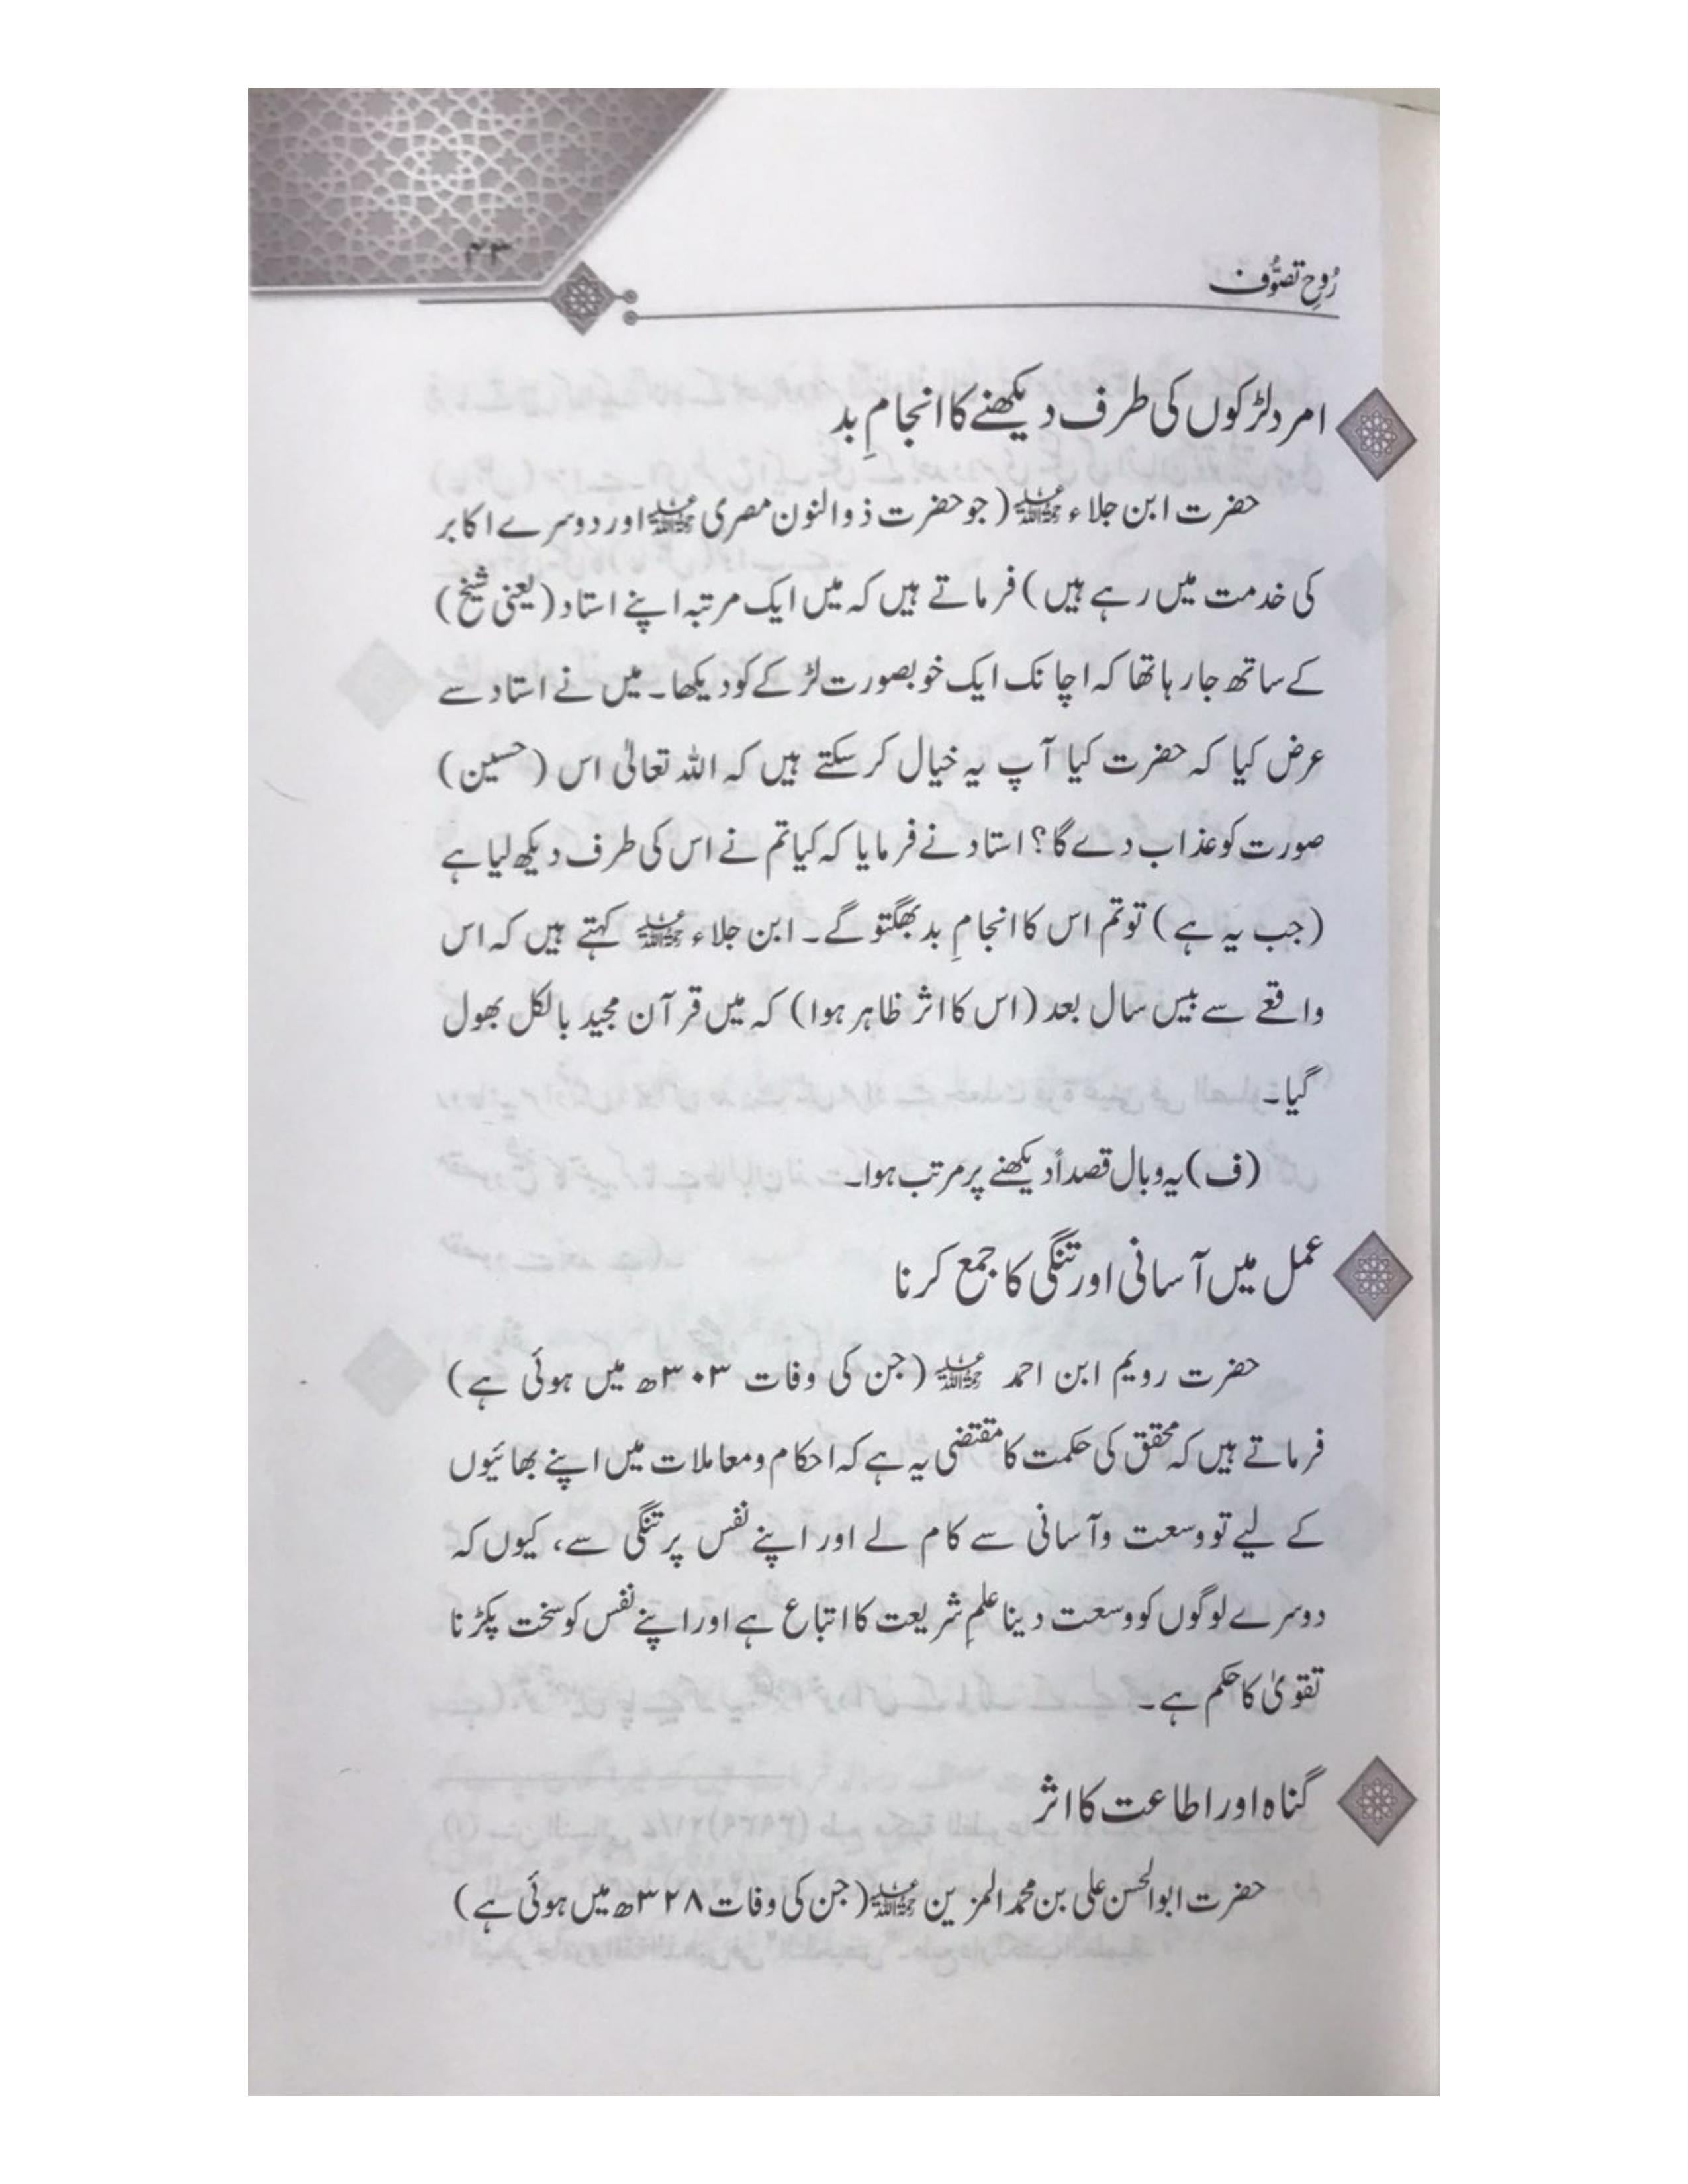 رُوحِ تصوُّف
۴۳
امرد لڑکوں کی طرف دیکھنے کا انجامِ بد
حضرت ابن جلاء رحمۃ اللہ علیہ (جو حضرت ذوالنون مصری رحمۃ اللہ علیہ اور دوسرے اکابر
کی خدمت میں رہے ہیں) فرماتے ہیں کہ میں ایک مرتبہ اپنے استاد (یعنی شیخ)
کے ساتھ جارہا تھا کہ اچانک ایک خوبصورت لڑکے کو دیکھا۔ میں نے استاد سے
عرض کیا کہ حضرت کیا آپ یہ خیال کرسکتے ہیں کہ اللہ تعالیٰ اس (حسین)
صورت کو عذاب دے گا؟ استاد نے فرمایا کہ کیا تم نے اس کی طرف دیکھ لیا ہے
(جب یہ ہے) تو تم اس کا انجامِ بد بھگتو گے۔ ابن جلاء رحمۃ اللہ علیہ کہتے ہیں کہ اس
واقعے سے بیس سال بعد (اس کا اثر ظاہر ہوا) کہ میں قرآن مجید بالکل بھول
گیا۔
(ف) یہ وبال قصداً دیکھنے پر مرتب ہوا۔
عمل میں آسانی اور تنگی کا جمع کرنا
حضرت رویم ابن احمد رحمۃ اللہ علیہ (جن کی وفات ۳۰۳ھ میں ہوئی ہے)
فرماتے ہیں کہ محقق کی حکمت کا مقتضی یہ ہے کہ احکام و معاملات میں اپنے بھائیوں
کے لیے تو وسعت وآسانی سے کام لے اور اپنے نفس پر تنگی سے، کیوں کہ
دوسرے لوگوں کو وسعت دینا علمِ شریعت کا اتباع ہے اور اپنے نفس کو سخت پکڑنا
تقویٰ کا حکم ہے۔
گناہ اور اطاعت کا اثر
حضرت ابوالحسن علی بن محمد المزین رحمۃ اللہ علیہ (جن کی وفات ۳۲۸ھ میں ہوئی ہے)